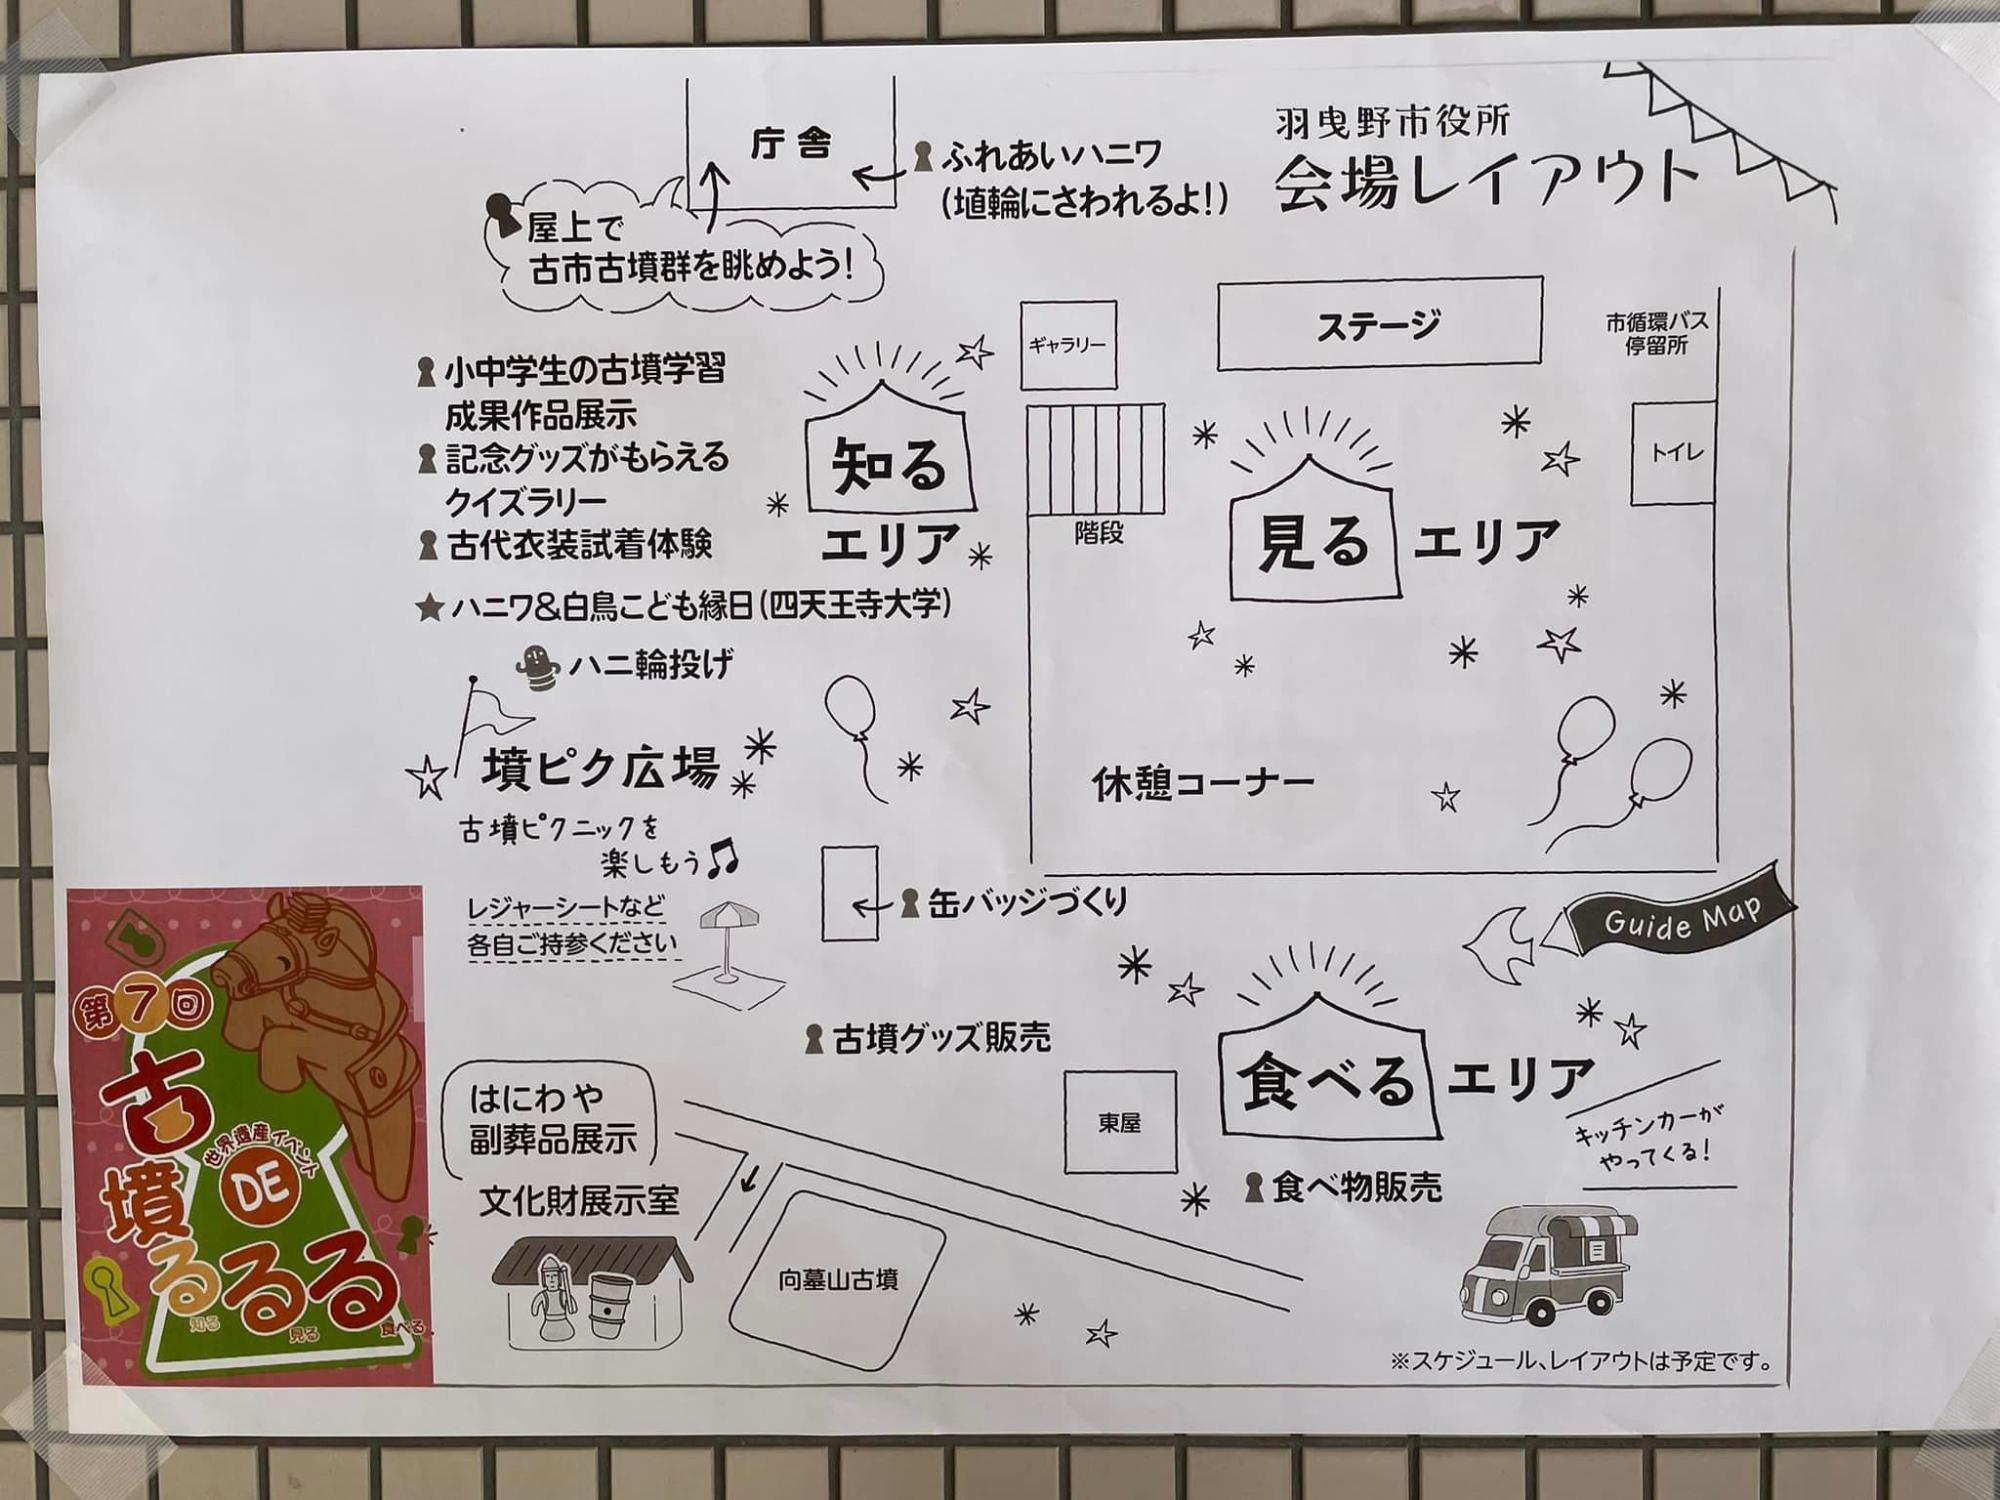 羽曳野市役所
会場レイアウト
庁舎
ふれあいハニワ
(埴輪にさわれるよ!)
屋上で
古市古墳群を眺めよう!
ギャラリー
ステージ
市循環バス
停留所
トイレ
階段
小中学生の古墳学習
成果作品展示
記念グッズがもらえる
クイズラリー
古代衣装試着体験
★ハニワ&白鳥こども縁日(四天王寺大学)
ハニ輪投げ
知る
エリア
見るエリア
休憩コーナー
墳ピク広場
古墳ピクニックを
楽しもう♫
レジャーシートなど
各自ご持参ください
缶バッジづくり
Guide Map
古墳グッズ販売
食べるエリア
東屋
食べ物販売
キッチンカーが
やってくる!
はにわや
副葬品展示
文化財展示室
向墓山古墳
※スケジュール、レイアウトは予定です。
第7回
古墳
世界遺産イベント
DE
るるる
知る
見る
食べる